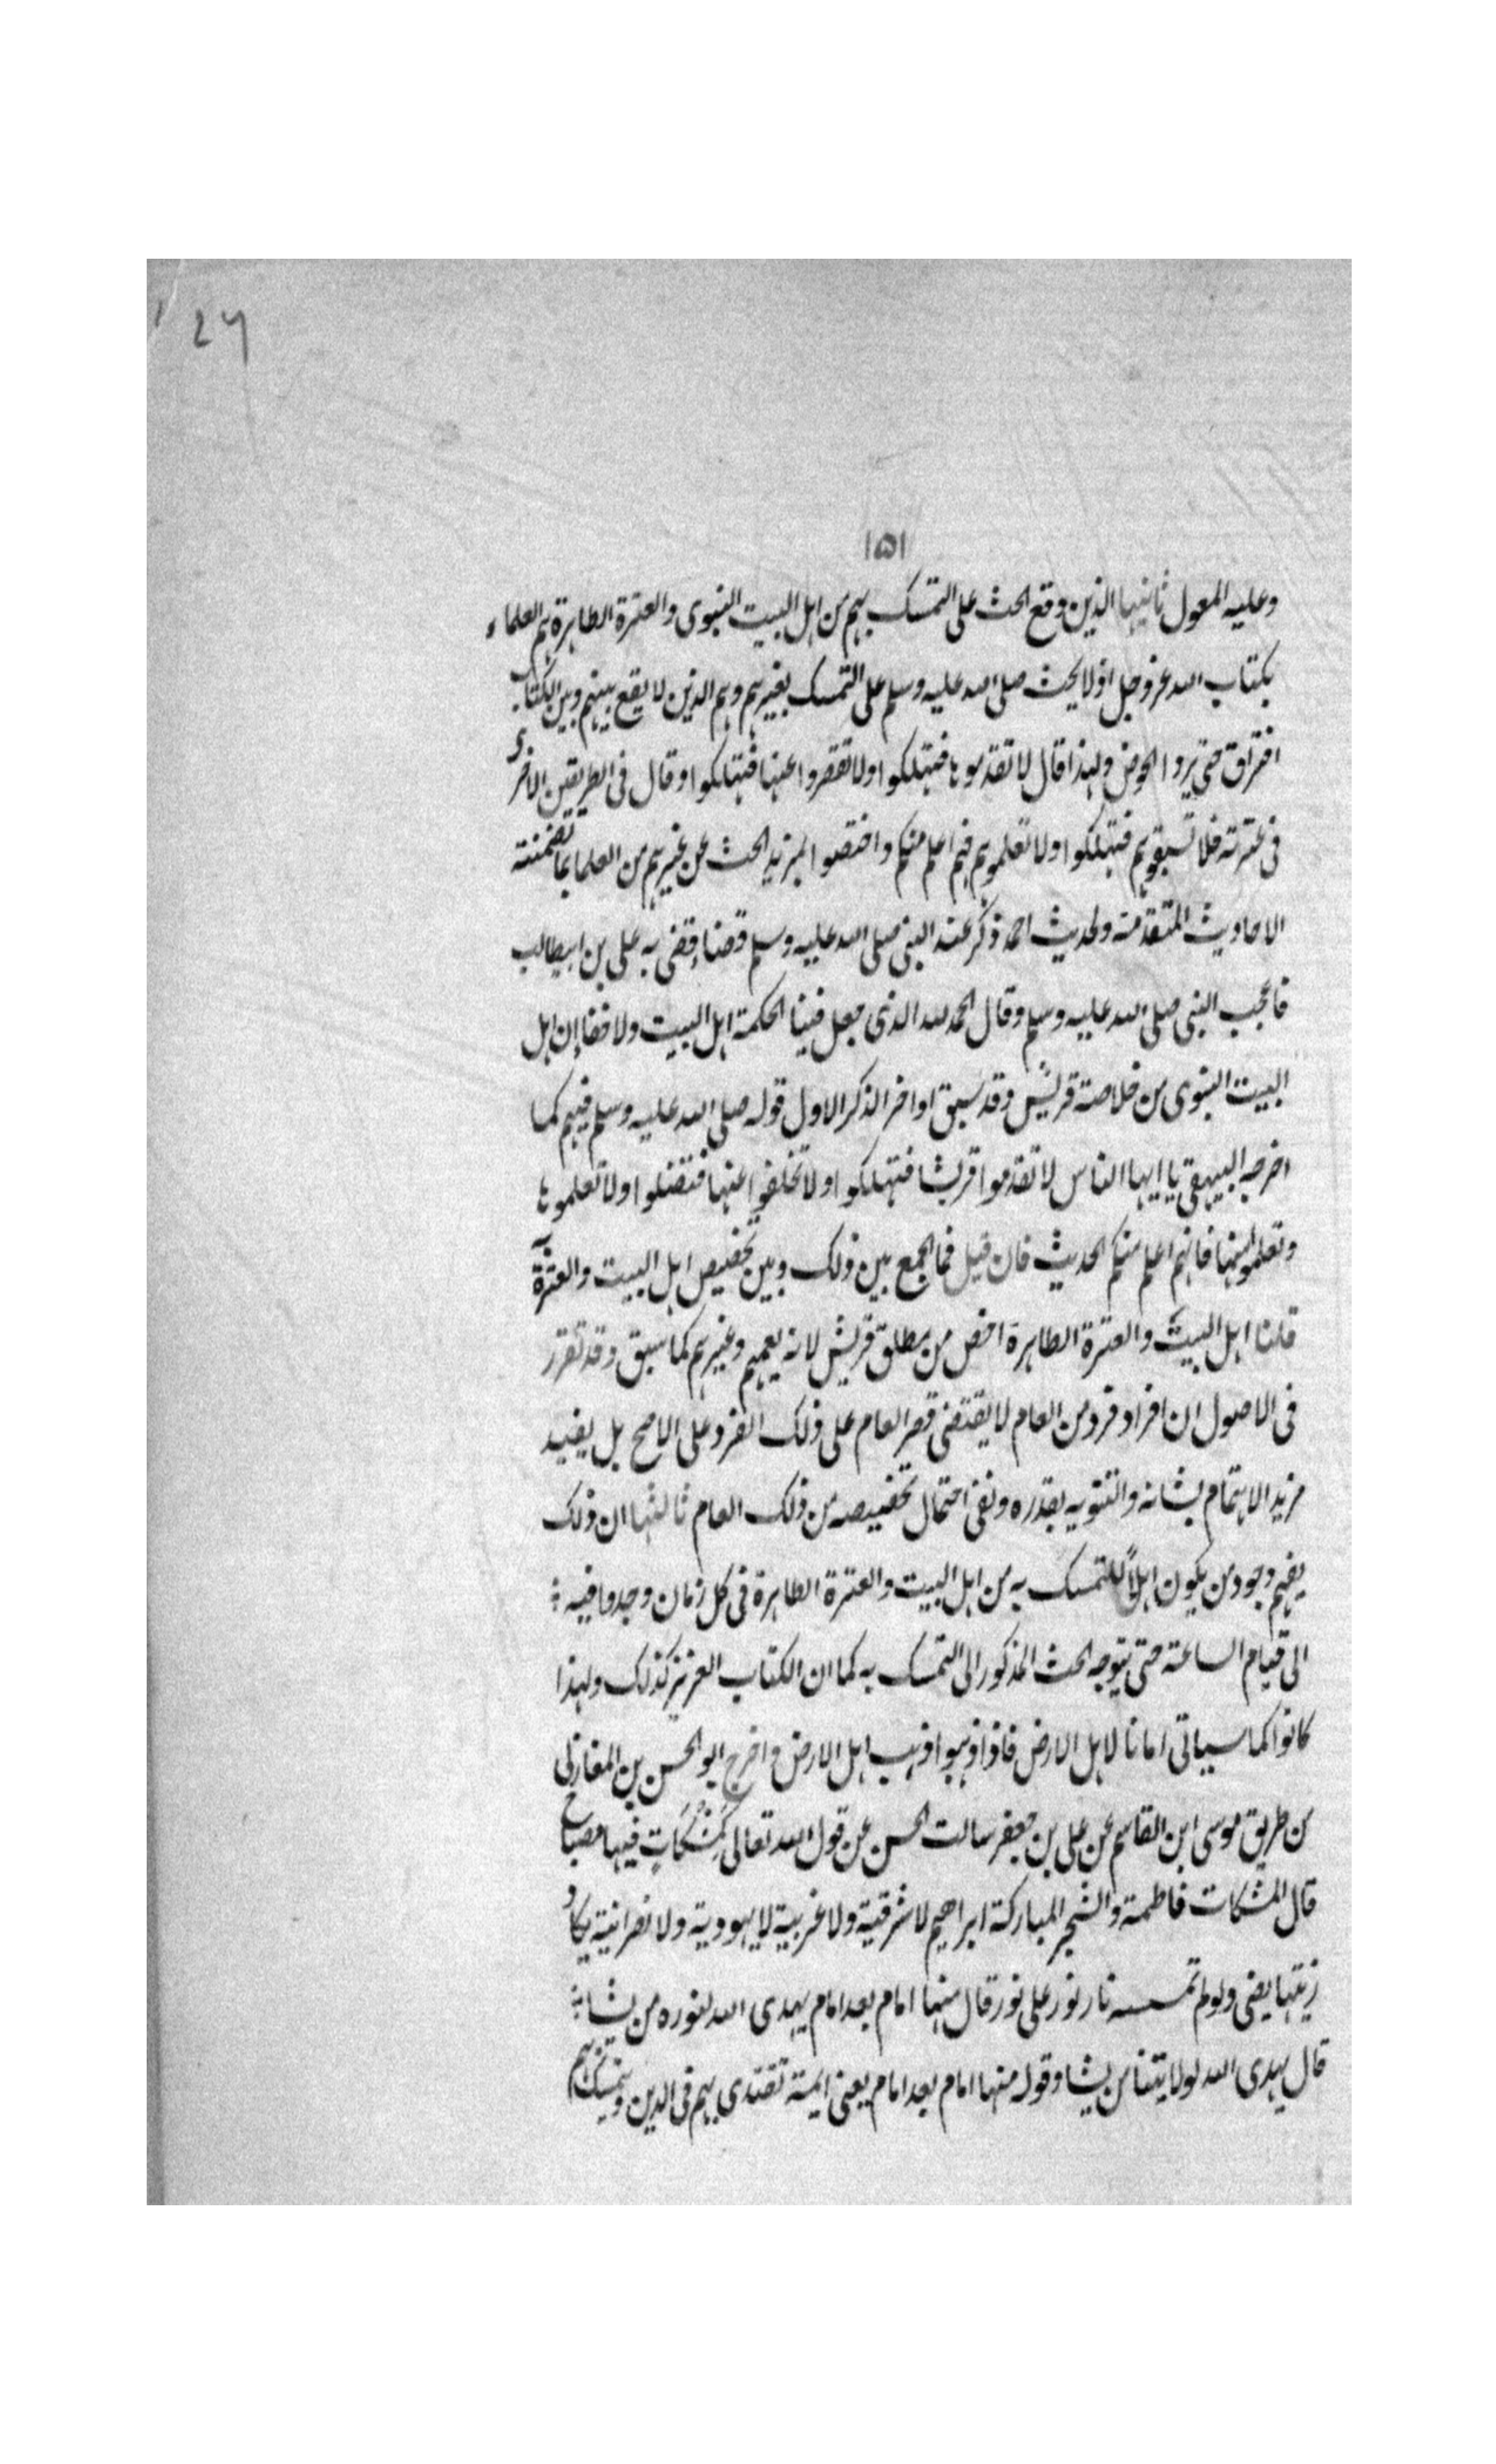 ۲۶
۱۵۱
وعليه المعول ثانيها الذين وقع الحث على التمسك بهم من اهل البيت النبوى والعترة الطاهرة هم العلماء
بكتاب الله عزوجل اذ لا يحث صلى الله عليه وسلم على التمسك بغيرهم وهم الذين لا يقع بينهم وبين الكتاب
افتراق حتى يردا الحوض ولهذا قال لا تقدموها فتهلكوا ولا تقصروا عنها فتهلكوا وقال فى الطريقين الاخرى
فى عترته فلا تسبقوهم فتهلكوا ولا تعلموهم فهم اعلم منكم واختصوا بمزيد الحث عن غيرهم من العلما بما تضمنته
الاحاديث المتقدمة ولحديث احمد ذكر عند النبى صلى الله عليه وسلم قضاء قضى به على بن ابيطالب
فاعجب النبى صلى الله عليه وسلم وقال الحمد لله الذى جعل فينا الحكمة اهل البيت ولا خفاء ان اهل
البيت النبوى من خلاصة قريش وقد سبق اواخر الذكر الاول قوله صلى الله عليه وسلم فيهم كما
اخرجه البيهقى يا ايها الناس لا تقدموا قريشا فتهلكوا ولا تخلفوا عنها فتضلوا ولا تعلموها
وتعلموا منها فانهم اعلم منكم الحديث فان قيل فما الجمع بين ذلك وبين تخصيص اهل البيت والعترة
قلنا اهل البيت والعترة الطاهرة اخص من مطلق قريش لانه يعمهم وغيرهم كما سبق وقد تقرر
فى الاصول ان افراد فرد من العام لا يقتضى قصر العام على ذلك الفرد على الاصح بل يفيد
مزيد الاهتمام بشانه والتنويه بقدره ونفى احتمال تخصيصه من ذلك العام ثالثها ان ذلك
يفهم وجود من يكون اهلاً للتمسك به من اهل البيت والعترة الطاهرة فى كل زمان وجدوا فيه
الى قيام الساعة حتى يتوجه الحث المذكور الى التمسك به كما ان الكتاب العزيز كذلك ولهذا
كانوا كما سياتى امانا لاهل الارض فاذا ذهبوا ذهب اهل الارض واخرج ابو الحسن بن المغازلى
من طريق موسى ابن القاسم عن على بن جعفر سالت الحسن عن قول الله تعالى كَمِشْكَاتٍ فيها مصباح
قال المشكات فاطمة والشجر المباركة ابراهيم لا شرقية ولا غربية لا يهودية ولا نصرانية يكاد
زيتها يضى ولو لم تمسسه نار نور على نور قال منها امام بعد امام يهدى الله لنوره من يشاء
قال يهدى الله لولايتنا من يشا وقوله منها امام بعد امام يعنى ايمة تقتدى بهم فى الدين ويتمسك بهم